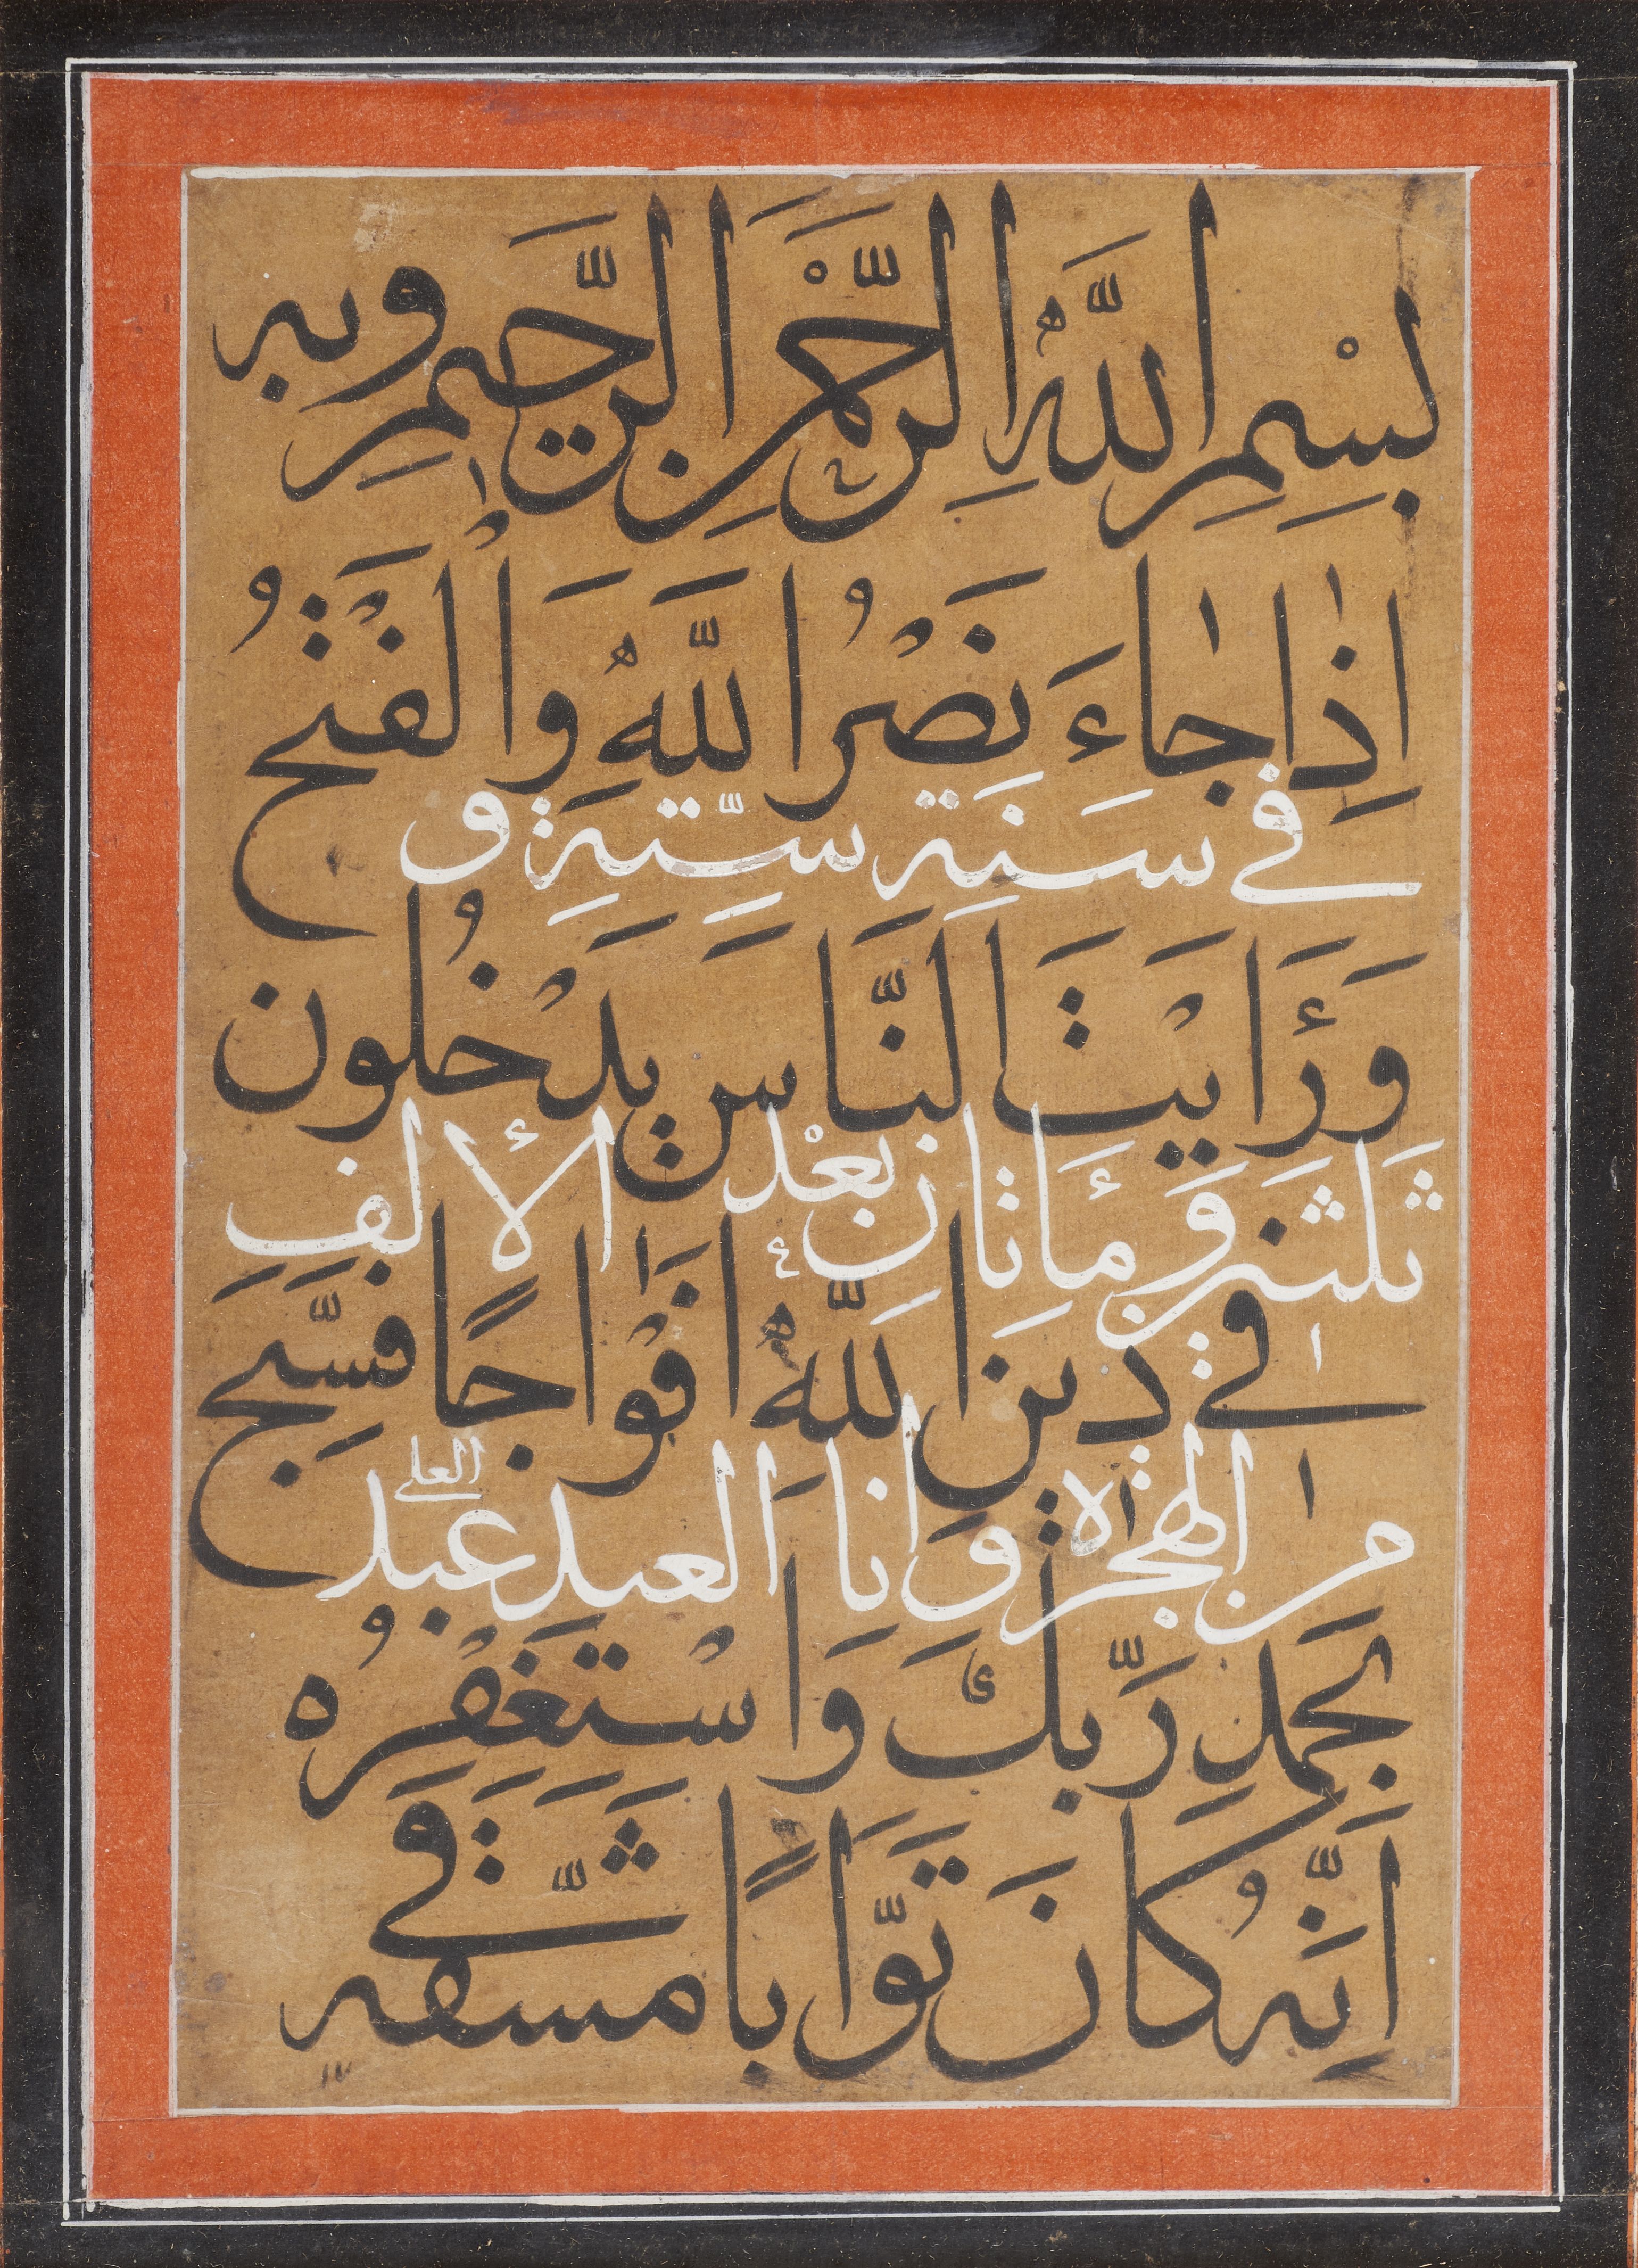 بِسْمِ اللَّهِ الرَّحْمَنِ الرَّحِيمِ وبه
اِذٰا جٰاءَ نَصْرُ اللَّهِ وَالْفَتْحُ
في سَنَةِ سِتَّةِ و
وَرَأَيْتَ النَّاسَ يَدْخُلُون
ثَلثين وَمأَتان بَعْد الألفِ
في دين اللَّهِ افْوٰاجًا فَسَبِّح
من الهجرة وَانا العبد عبد العلي
بحَمدِ رَبِّكَ وَاسْتَغْفِرْهُ
اِنَّهُ كانَ تَوَّابًا